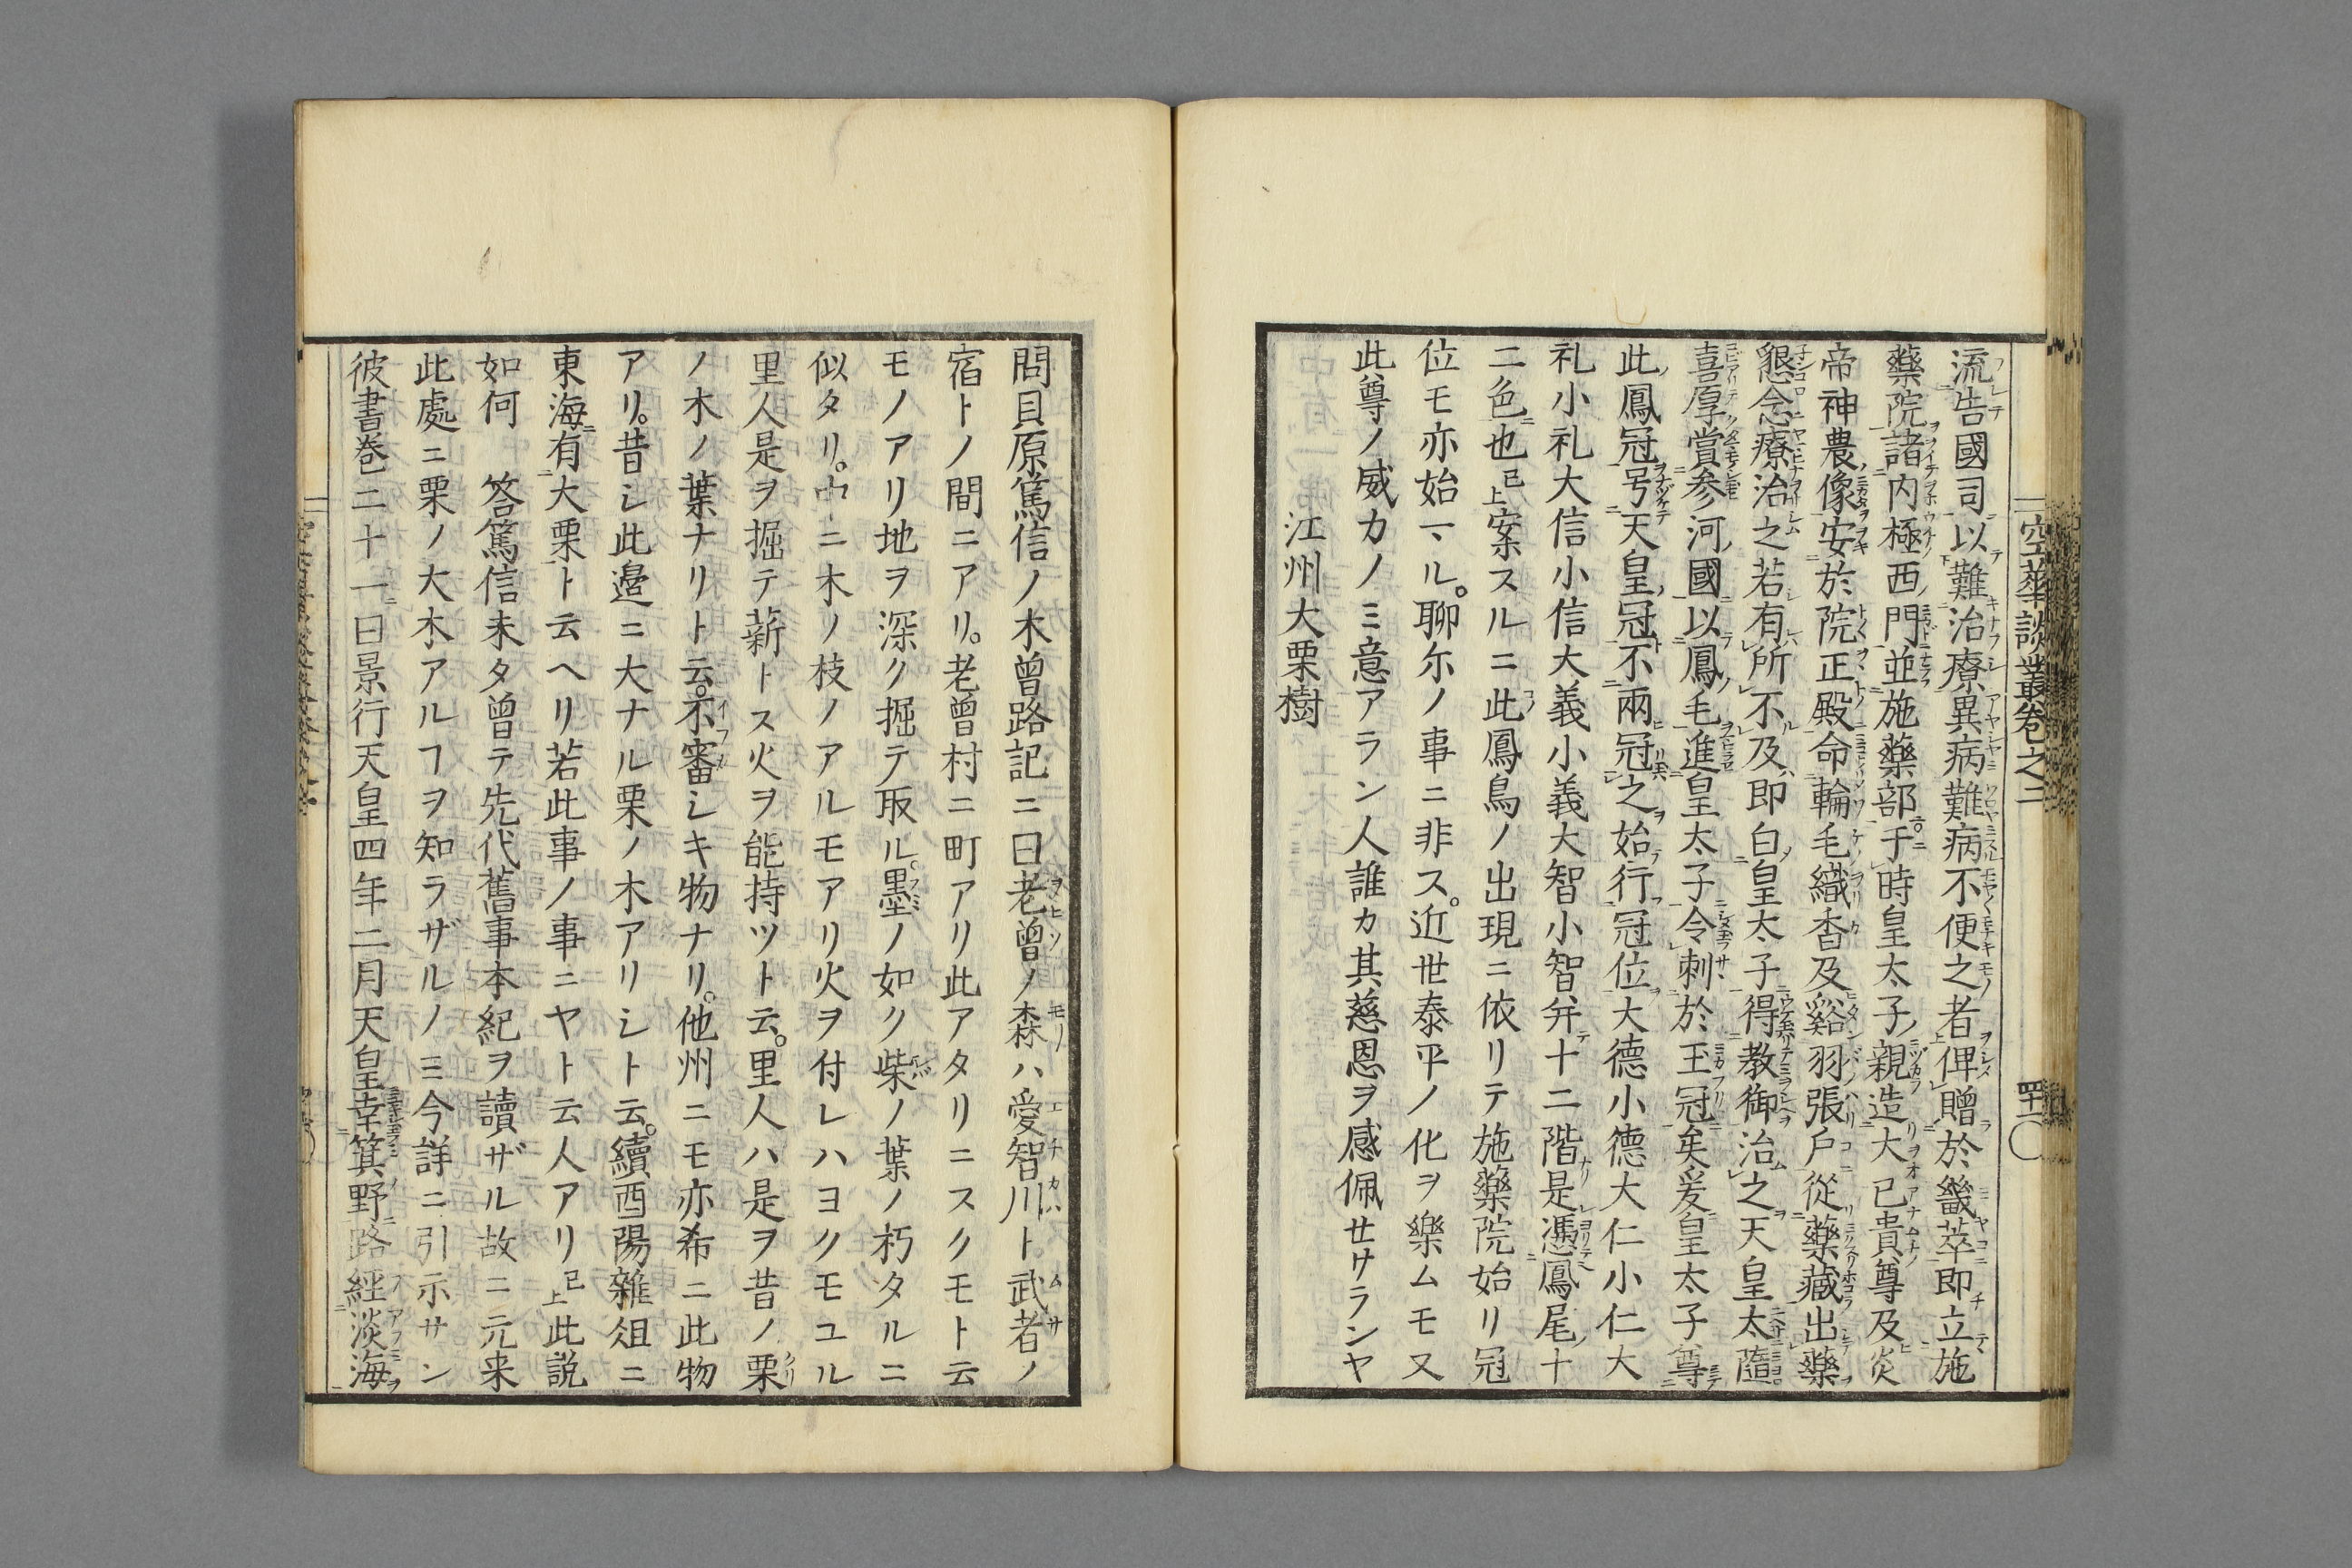 空華談叢卷之二
四十
流告國司以難治療異病難病不便之者俾贈於畿萃即立施
藥院諸内極西門並施藥部于時皇太子親造大已貴尊及炎
帝神農像安於院正殿命輪毛織香及谿羽張戶從藥藏出藥
懇念療治之若有所不及即白皇太子得教御治之天皇太隨
喜厚賞參河國以鳳毛進皇太子令刺於玉冠矣爰皇太子尊
此鳳冠号天皇冠不兩冠之始行冠位大德小德大仁小仁大
礼小礼大信小信大義小義大智小智并十二階是憑鳳尾十
二色也已上案スルニ此鳳鳥ノ出現ニ依リテ施藥院始リ冠
位モ亦始マル。聊尓ノ事ニ非ス。近世泰平ノ化ヲ樂ムモ又
此尊ノ威カノミ意アラン人誰カ其慈恩ヲ感佩セサランヤ
江州大栗樹
問貝原篤信ノ木曾路記ニ曰老曾ノ森ハ愛智川ト武者ノ
宿トノ間ニアリ。老曾村ニ町アリ此アタリニスクモト云
モノアリ地ヲ深ク掘テ取ル。墨ノ如ク柴ノ葉ノ朽タルニ
似タリ。中ニ木ノ枝ノアルモアリ火ヲ付レハヨクモユル
里人是ヲ掘テ薪トス火ヲ能持ツト云。里人ハ是ヲ昔ノ栗
ノ木ノ葉ナリト云。不審シキ物ナリ。他州ニモ亦希ニ此物
アリ。昔シ此邉ニ大ナル栗ノ木アリシト云。續酉陽雜俎ニ
東海有大栗ト云ヘリ若此事ノ事ニヤト云人アリ已上此説
如何　答篤信未タ曾テ先代舊事本紀ヲ讀ザル故ニ元来
此處ニ栗ノ大木アルヿヲ知ラザルノミ今詳ニ引示サン
彼書巻二十一曰景行天皇四年二月天皇幸箕野路經淡海